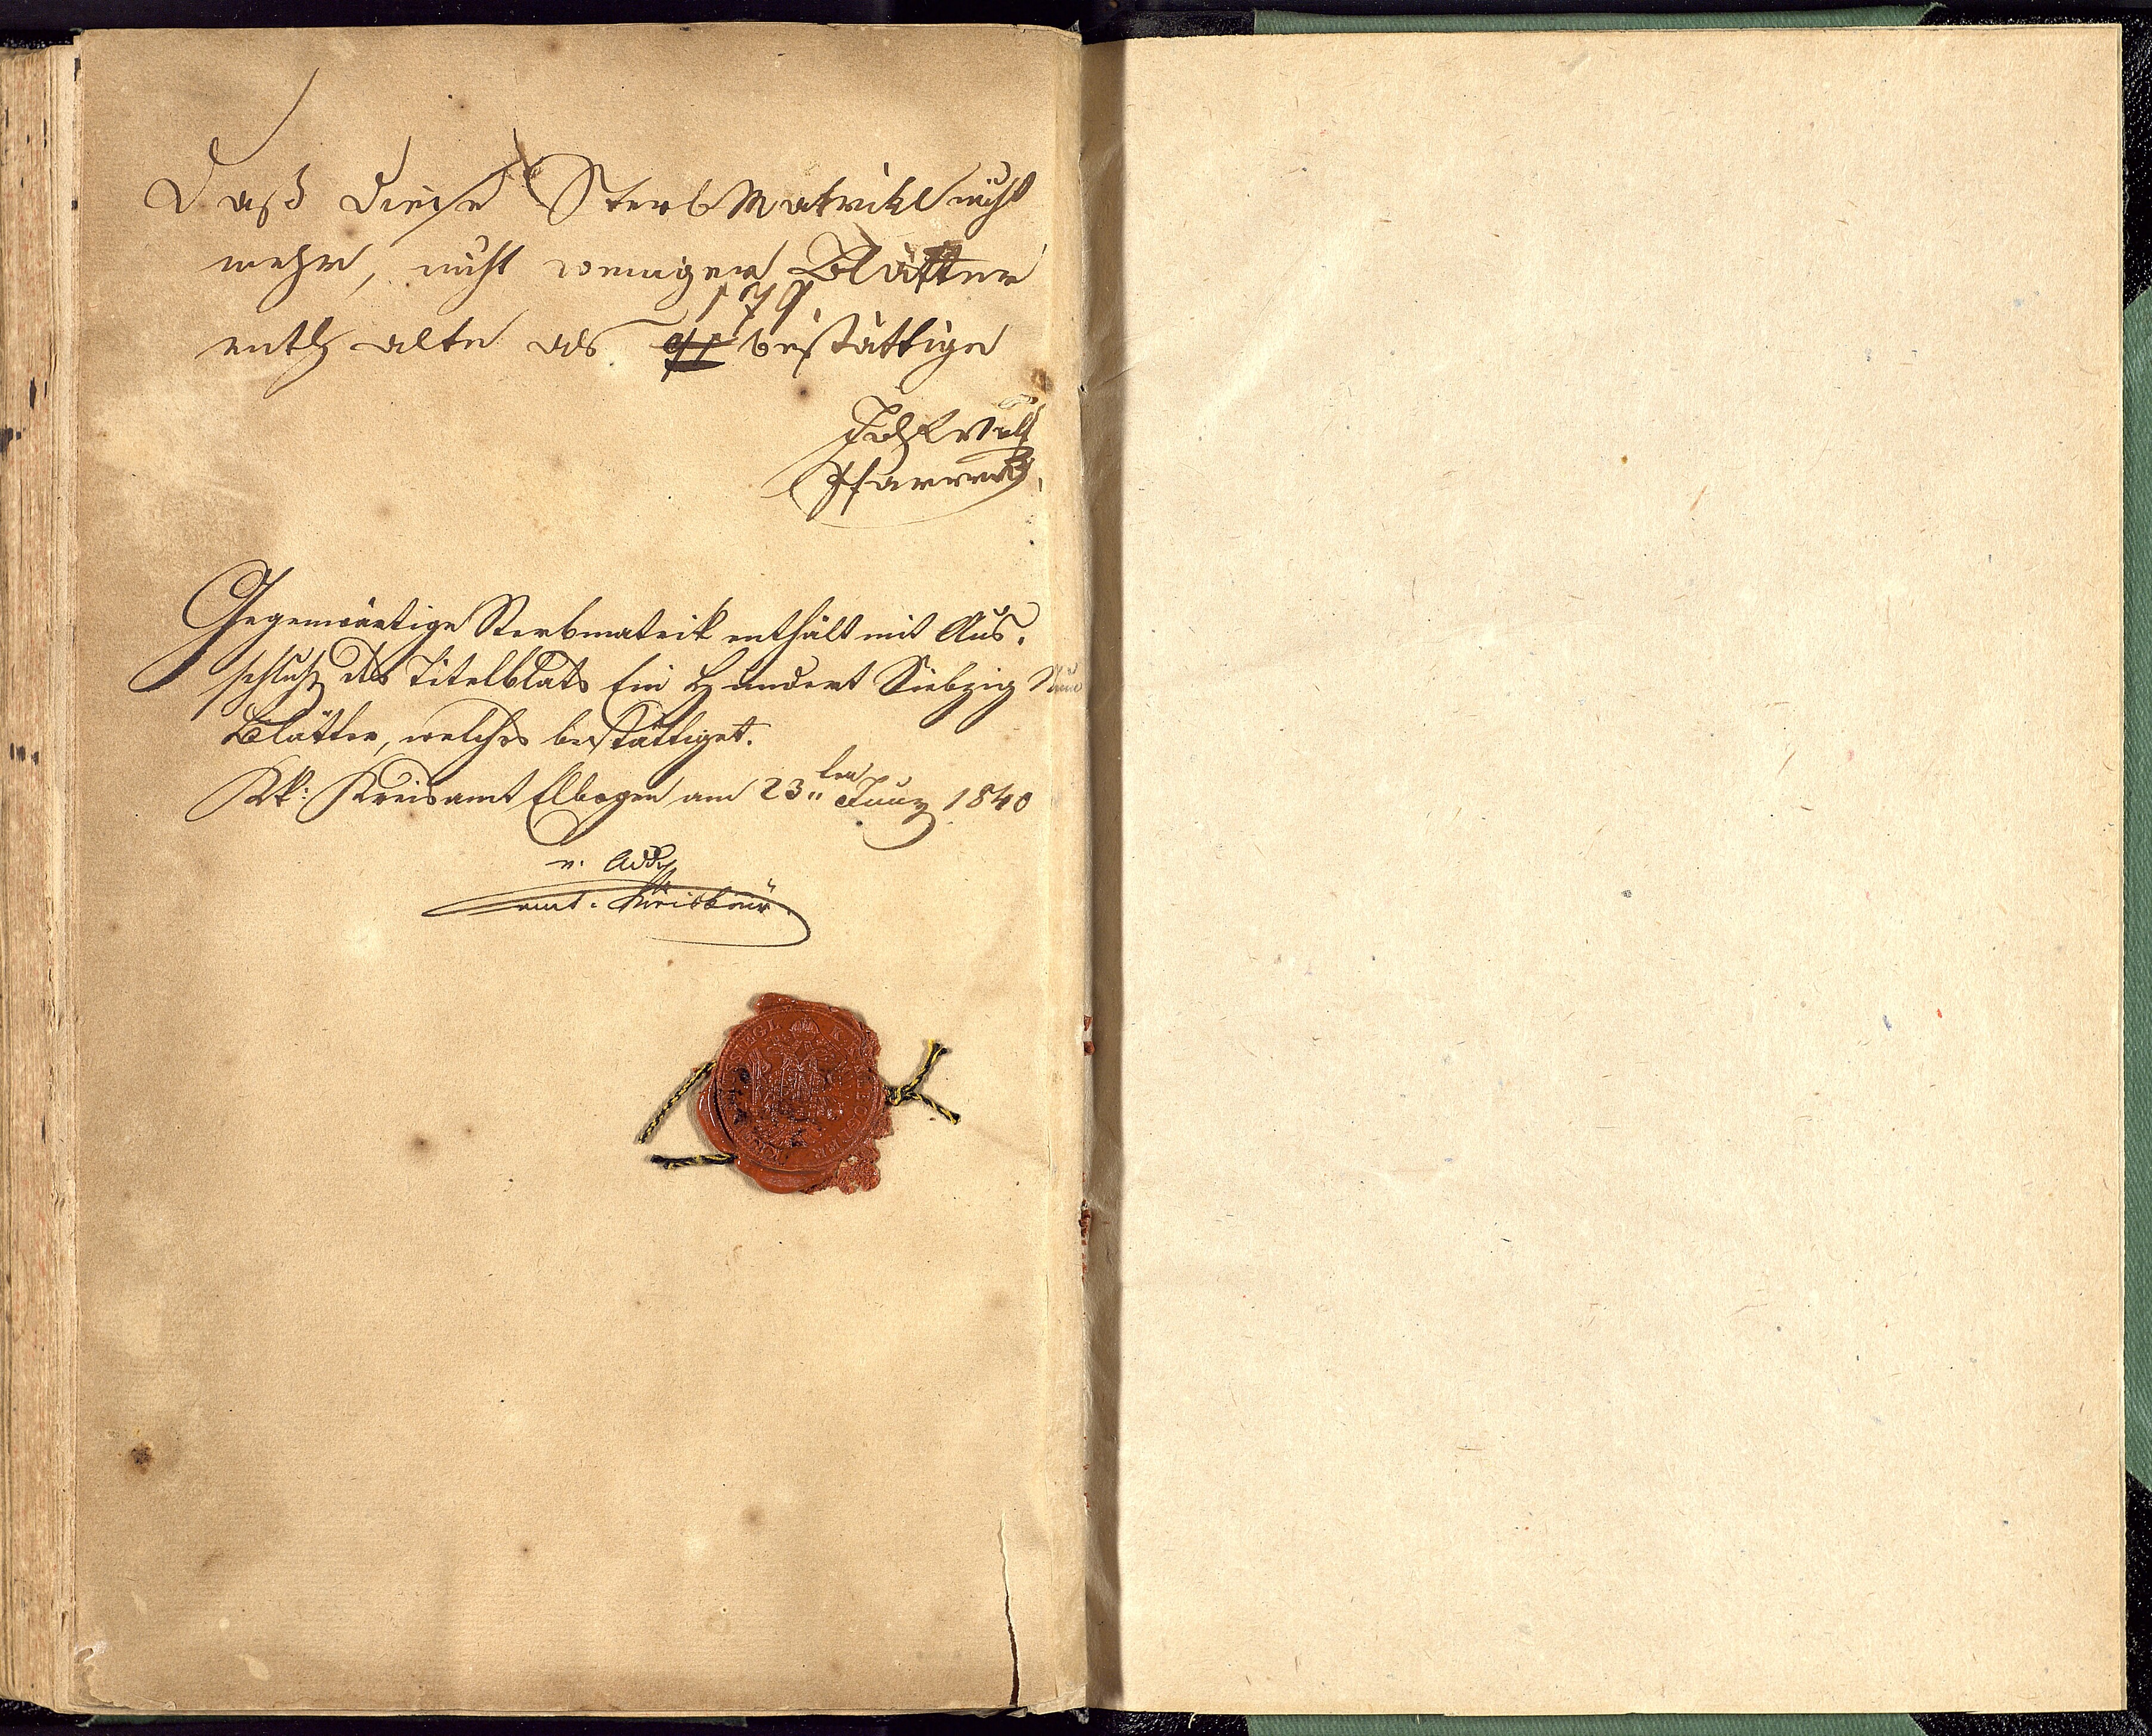 Daß diese Sterb Matrikl nicht
mehr, nicht weniger Blätter
179
enthalte als bestättige
Joh
Pfarrer
Gegenwärtige Sterbmatrik enthält mit Aus-
schluß des Titelblats Ein Hundert Siebzig Neun
Blätter, welches bestättiget.
KK: Kreisamt Elbogen am 23ten Juny 1840
v.